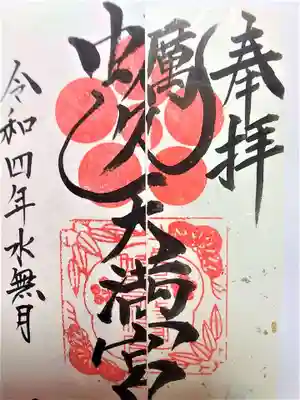 奉拝
蠣久天満宮
令和四年水無月